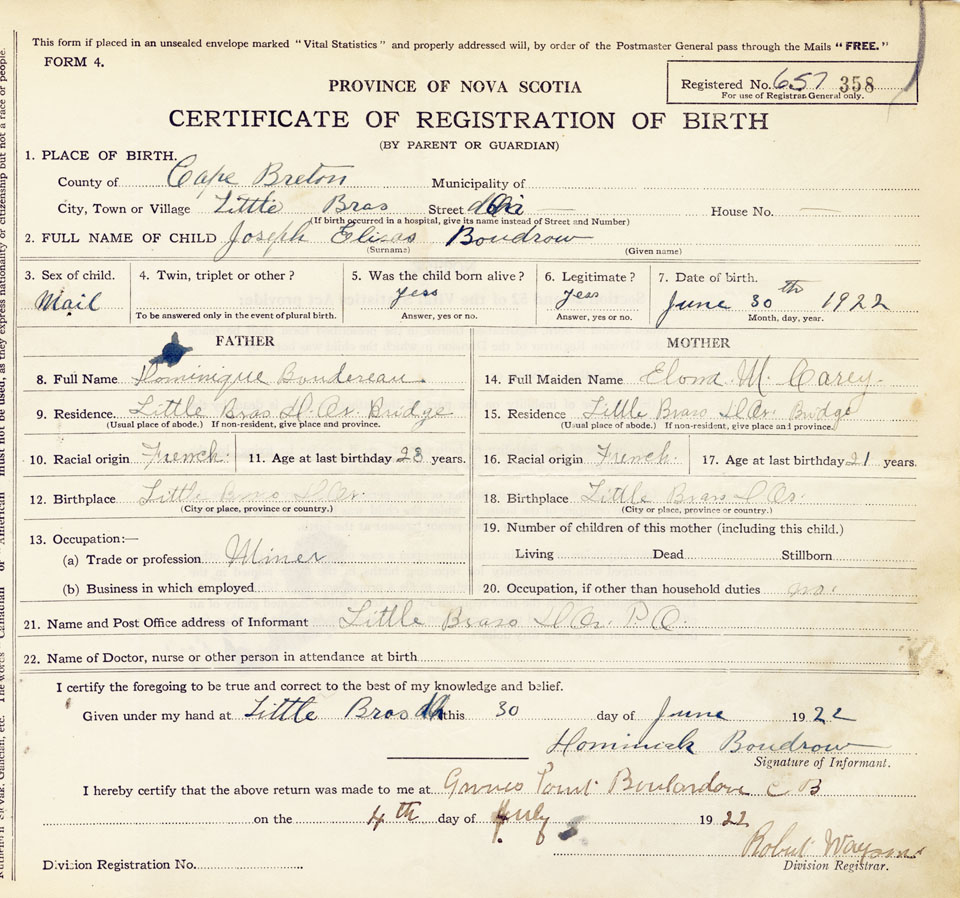 This form if placed in an unsealed envelope marked "Vital Statistics" and properly addressed will, by order of the Postmaster General pass through the Mails "FREE."
FORM 4.
Registered No. 657 358
For use of Registrar General only.
PROVINCE OF NOVA SCOTIA
CERTIFICATE OF REGISTRATION OF BIRTH
(BY PARENT OR GUARDIAN)
1. PLACE OF BIRTH.
County of Cape Breton Municipality of
City, Town or Village Little Bras Street House No.
(If birth occurred in a hospital, give its name instead of Street and Number)
2. FULL NAME OF CHILD Joseph Elias Boudrow
(Surname) (Given name)
3. Sex of child. 4. Twin, triplet or other? 5. Was the child born alive? 6. Legitimate? 7. Date of birth.
Mail yess yess June 30th 1922
To be answered only in the event of plural birth. Answer, yes or no. Answer, yes or no. Month, day, year.
FATHER MOTHER
8. Full Name Dominique Boudereau. 14. Full Maiden Name M. Carey.
9. Residence Little Bras D'Or Bridge 15. Residence Little Brass D'Or Bridge
(Usual place of abode.) If non-resident, give place and province. (Usual place of abode.) If non-resident, give place and province.
10. Racial origin French. 11. Age at last birthday 23 years. 16. Racial origin French. 17. Age at last birthday 21 years.
12. Birthplace Little Brass D'Or. 18. Birthplace Little Brass D'Or.
(City or place, province or country.) (City or place, province or country.)
13. Occupation:— 19. Number of children of this mother (including this child.)
(a) Trade or profession Miner Living Dead Stillborn
(b) Business in which employed 20. Occupation, if other than household duties no.
21. Name and Post Office address of Informant Little Brass D'Or. P.O.
22. Name of Doctor, nurse or other person in attendance at birth
I certify the foregoing to be true and correct to the best of my knowledge and belief.
Given under my hand at Little Bras this 30 day of June 1922
Dominick Boudrow
Signature of Informant.
I hereby certify that the above return was made to me at Point Boulardarie C B
on the 4th day of July 1922
Robert
Division Registrar.
Division Registration No.